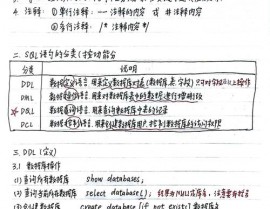 4. 注释: ① 单行注释: -- 注释的内容 或 # 注释内容
② 多行注释: /* 注释内容 */
二. SQL语句的分类(按功能分
分类 说明
DDL 数据定义语言, 用来定义数据库对象(数据库, 表, 字段)
DML 数据操作语言, 用来对数据库表中的数据进行增删改
DQL 数据查询语言, 用来查询数据库中表的记录
DCL 数据控制语言, 用来创建数据库用户, 控制数据库的访问权限
三. DDL (定义)
3.1 数据库操作
(1) 查询所有数据库 show databases;
(2) 查询当前所在数据库 select database();
(3) 创建数据库 create database [if not exists] 数据库名